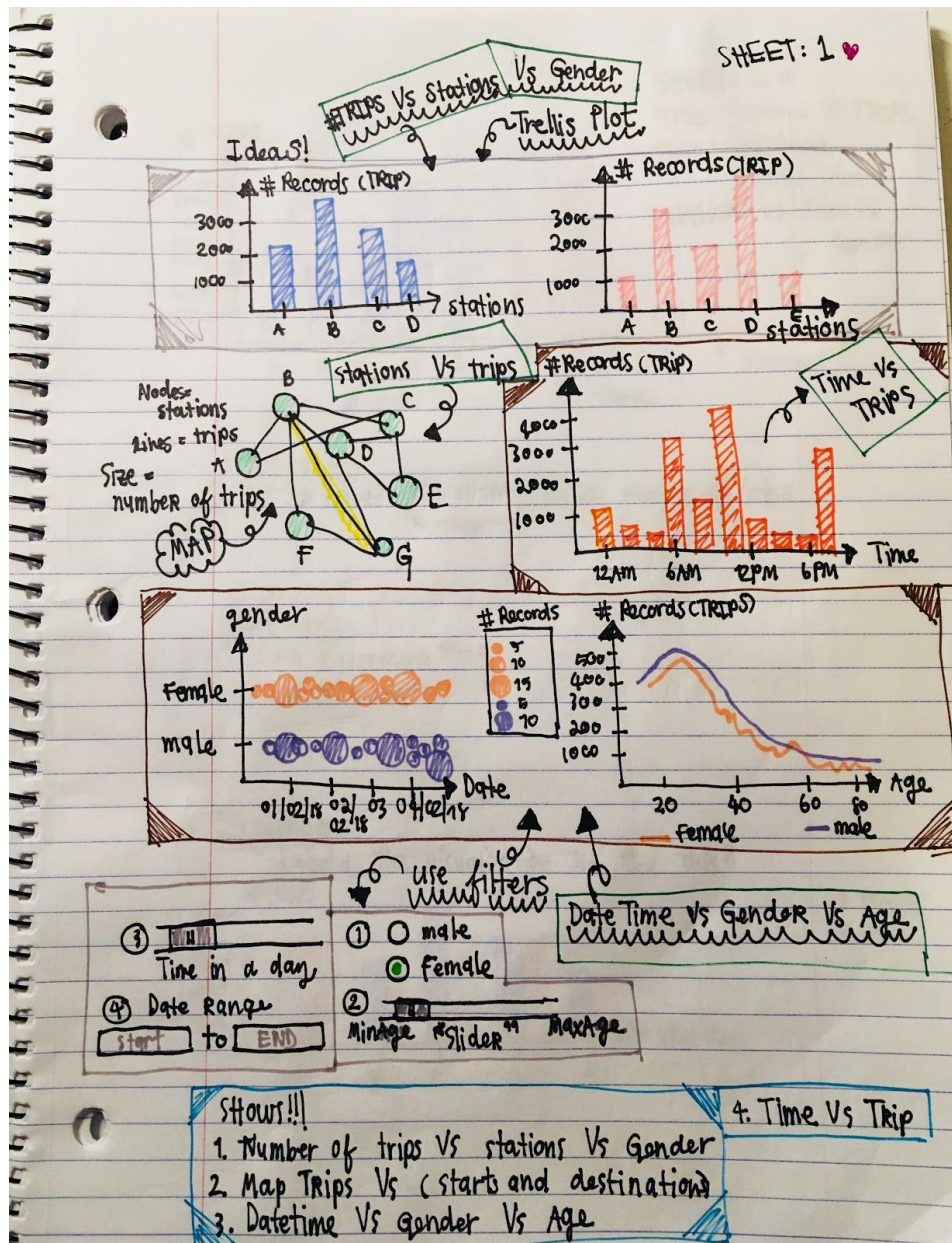 SHEET: 1
#TRIPS Vs Stations Vs Gender
Trellis Plot
Ideas!
# Records (TRIP)
3000
2000
1000
A B C D
stations
# Records (TRIP)
3000
2000
1000
A B C D E
stations
stations Vs trips
Nodes=
stations
Lines = trips
Size =
number of trips
MAP
A
B
C
D
E
F
G
# Records (TRIP)
Time Vs
TRIPS
4000
3000
2000
1000
12AM 6AM 12PM 6PM
Time
gender
Female
male
01/02/18 02/02/18 03 04/02/18
Date
# Records
5
10
15
5
10
# Records (TRIPS)
500
400
300
200
1000
20 40 60 80
Age
Female male
use filters
Date Time Vs Gender Vs Age
3
Time in a day
4 Date Range
start to END
1 male
Female
2
MinAge "Slider" MaxAge
Shows!!!
1. Number of trips Vs stations Vs Gender
2. Map Trips Vs (starts and destination)
3. Datetime Vs gender Vs Age
4. Time Vs Trip